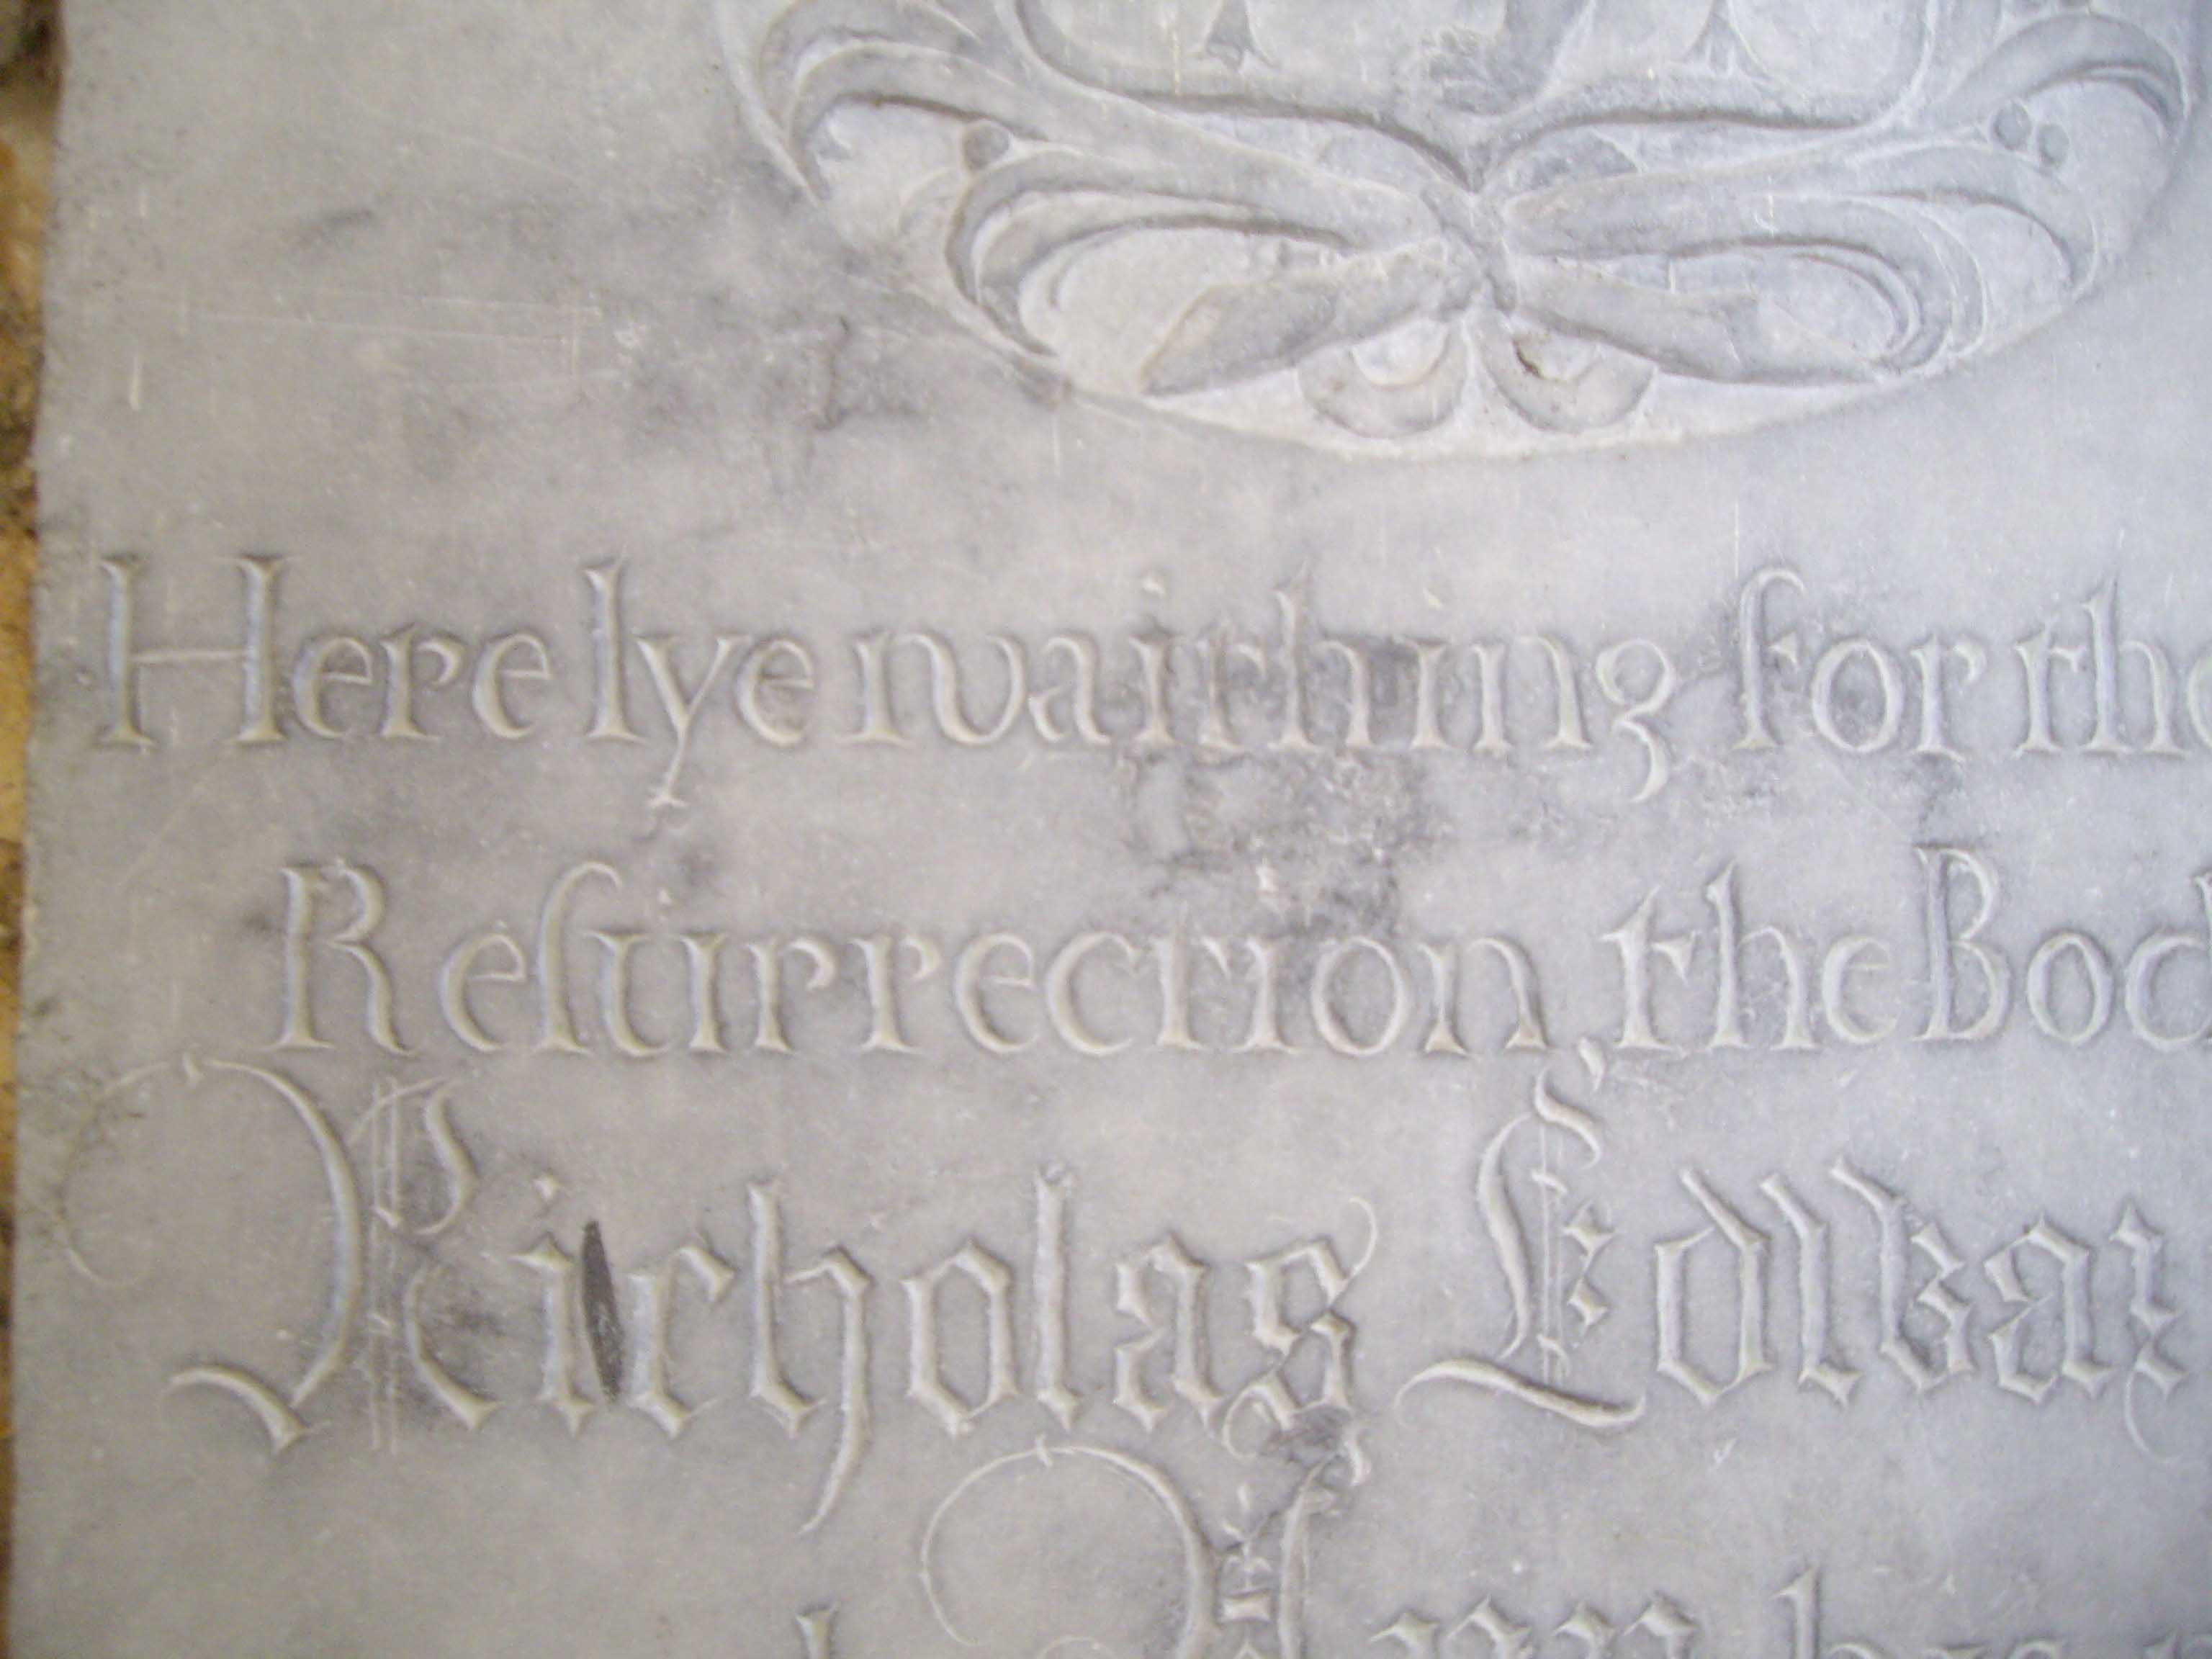 Here lye waithing for the
Reſurrection, the Bod
Nicholas
Ann his